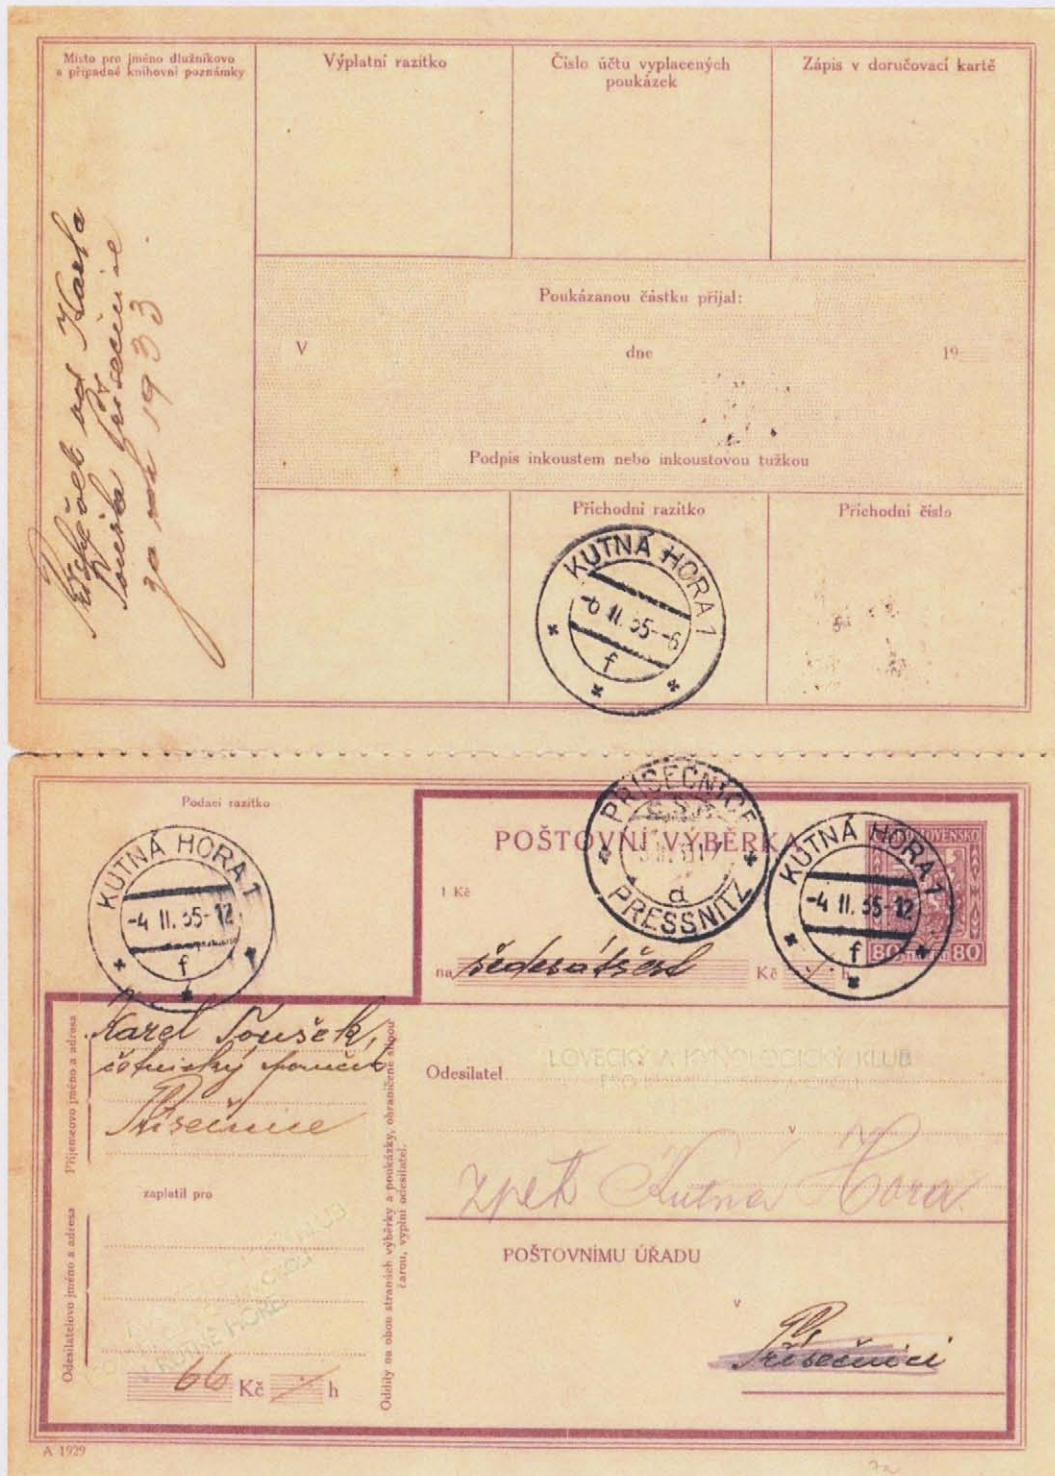 Místo pro jméno dlužníkovo
a případné knihovní poznámky
Výplatní razítko
Číslo účtu vyplacených
poukázek
Zápis v doručovací kartě
od Karla
za rok 1933
Poukázanou částku přijal:
V dne 19
Podpis inkoustem nebo inkoustovou tužkou
Příchodní razítko
Příchodní číslo
KUTNÁ HORA 1
-6 II. 35--6
f
Podací razítko
KUTNÁ HORA 1
-4 II. 35-12
f
POŠTOVNÍ VÝBĚRKA
PŘÍSEČNICE
ČSR
a
PRESSNITZ
KUTNÁ HORA 1
-4 II. 35-12
f
80 80
1 Kč
na šedesátšest Kč h
Příjemcovo jméno a adresa
Karel Soušek,
četnický
Přísečnice
zaplatil pro
Odesilatelovo jméno a adresa
KUTNÉ HOŘE
66 Kč h
Oddíly na obou stranách výběrky a poukázky, ohraničené silnou
čarou, vyplní odesilatel.
Odesilatel
LOVECKÝ A KYNOLOGICKÝ KLUB
v
zpět Kutná Hora
POŠTOVNÍMU ÚŘADU
v
Přísečnici
A 1929